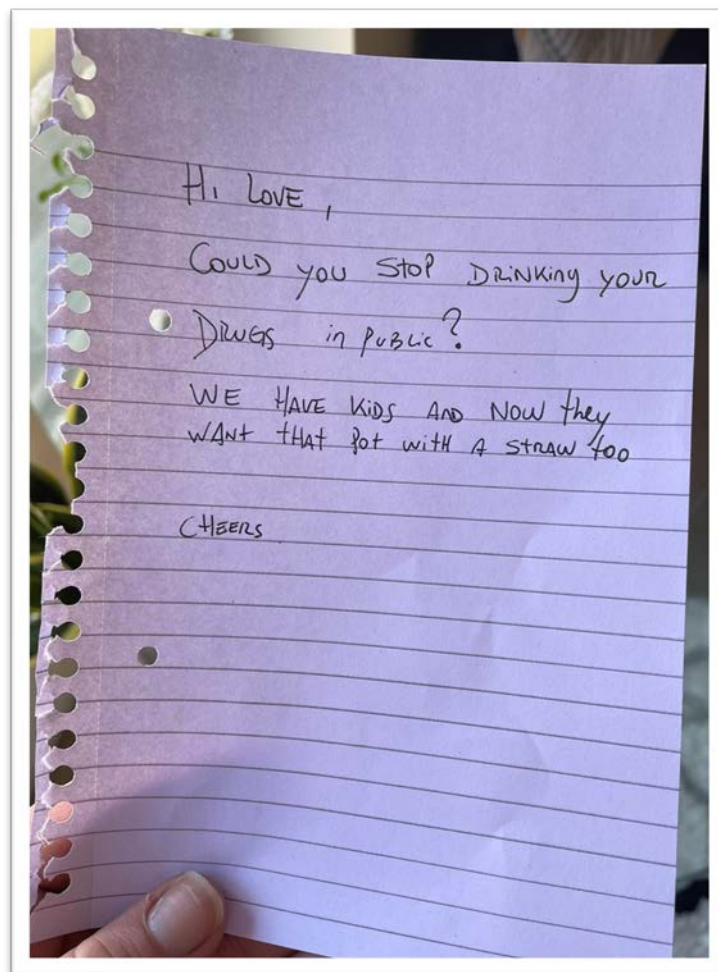 Hi LOVE,
COULD you StoP DRiNKiNg YOUR
DRUGS in PUBLiC?
WE HAVE KiDS AND NOW they
WANt tHAt Pot witH A StRAW too
CHEERS